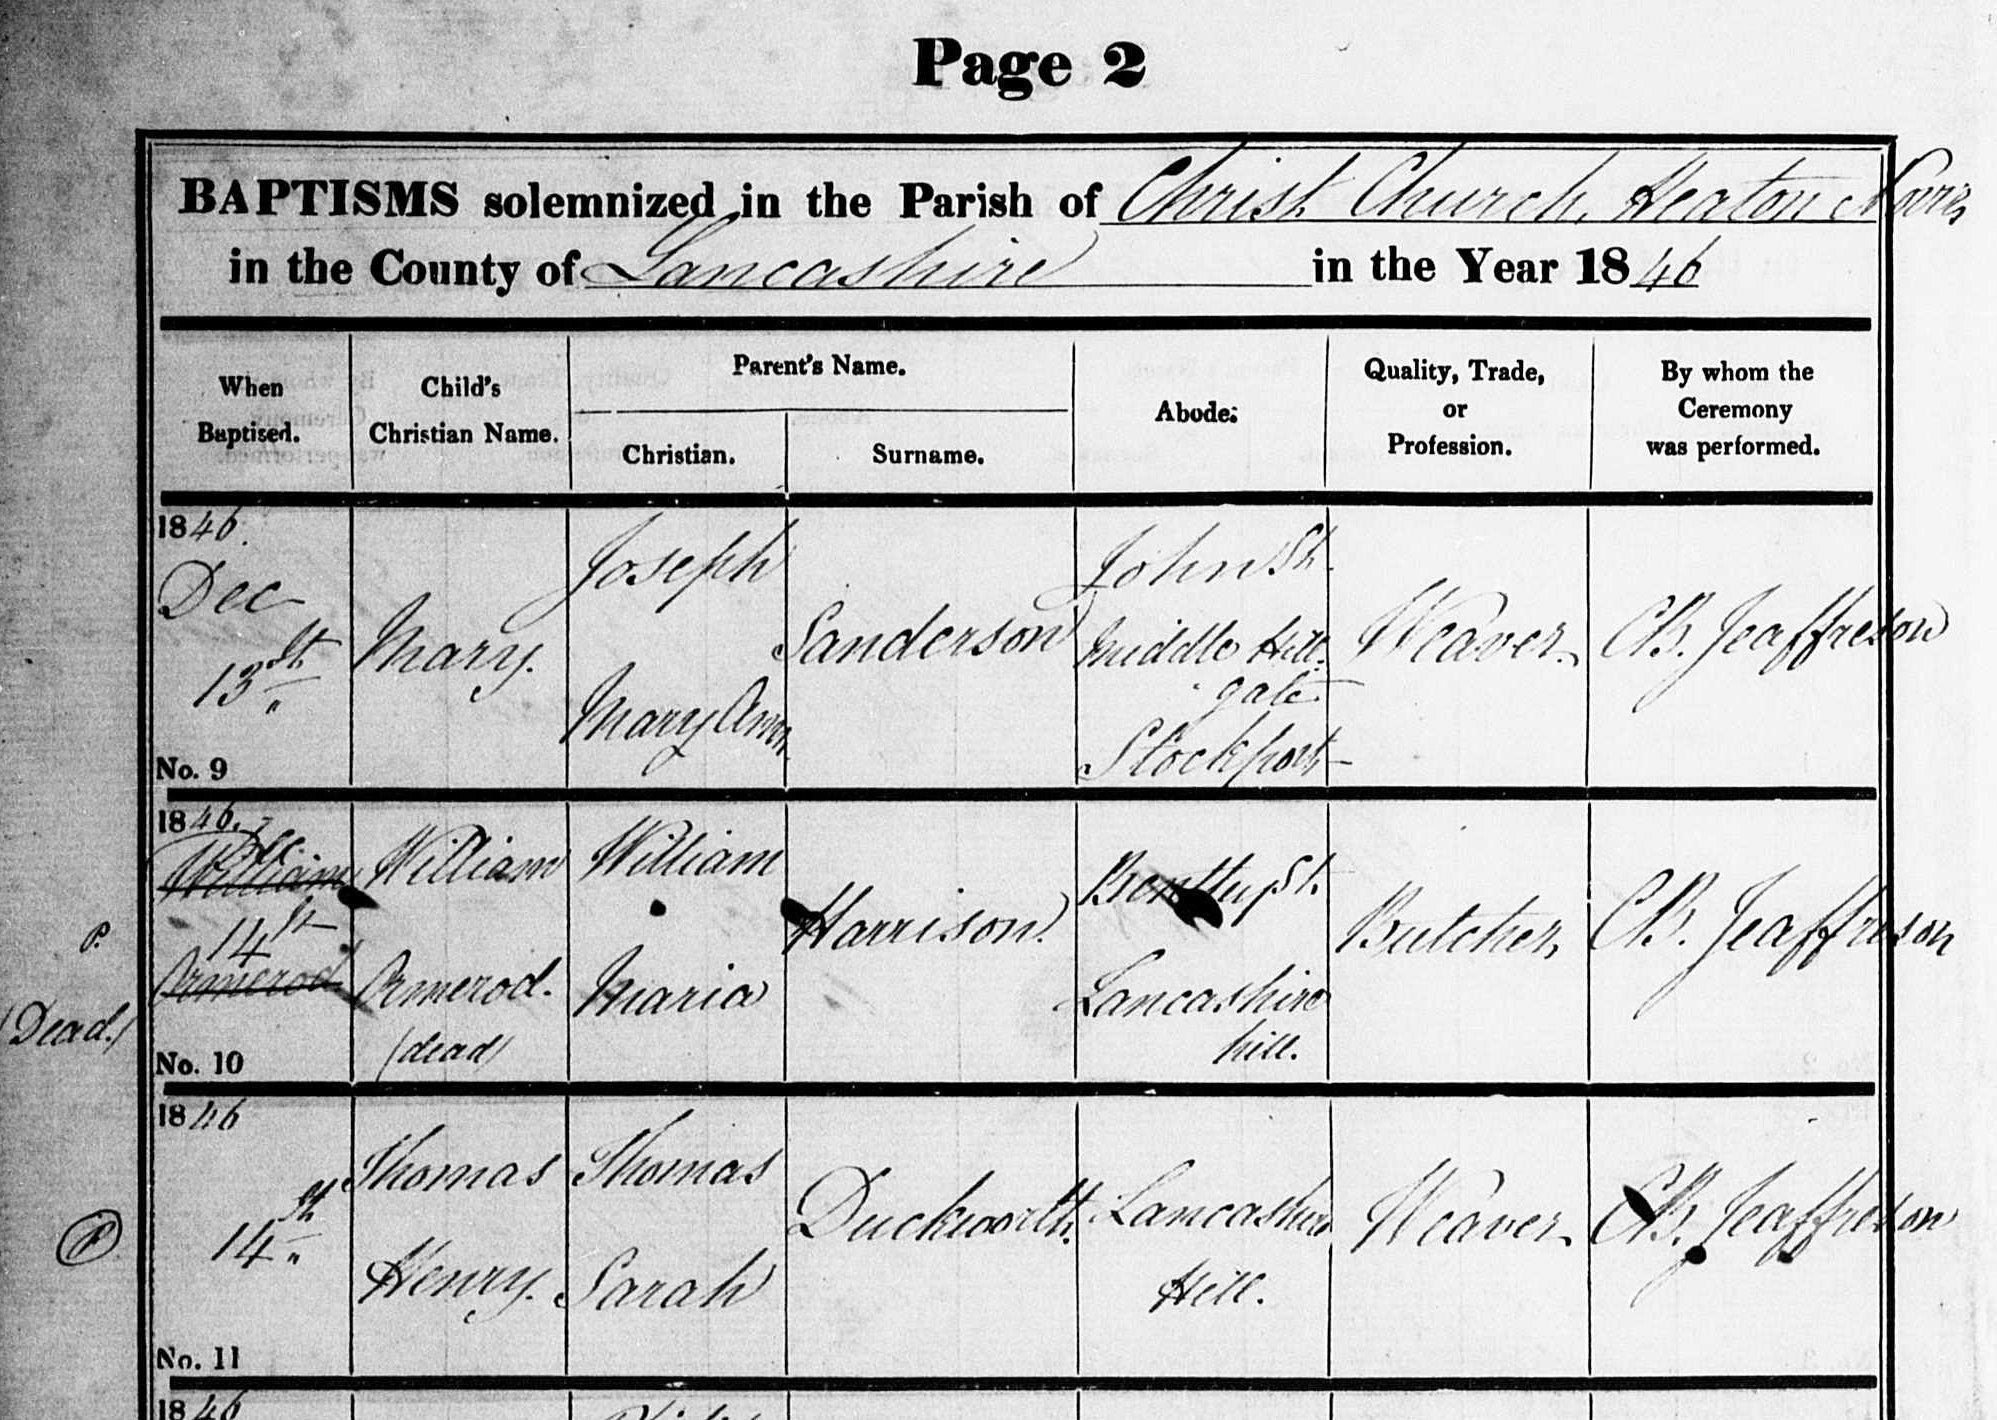 Page 2
BAPTISMS solemnized in the Parish of Christ Church, Heaton Norris
in the County of Lancashire in the Year 1846
When Baptised.
Child's Christian Name.
Parent's Name.
Christian.
Surname.
Abode.
Quality, Trade, or Profession.
By whom the Ceremony was performed.
1846.
Dec
13th
No. 9
Mary.
Joseph
Mary Ann
Sanderson
John St.
Middle Hill
gate
Stockport
Weaver
CB. Jeaffreson
P.
(Dead.)
1846.
Dec
William
14th
Ormerod
No. 10
William
Ormerod.
(dead)
William
Maria
Harrison.
St.
Lancashire
hill.
Butcher
CB. Jeaffreson
P
1846
14th
No. 11
Thomas
Henry.
Thomas
Sarah
Duckworth.
Lancashire
Hill.
Weaver
CB. Jeaffreson
1846